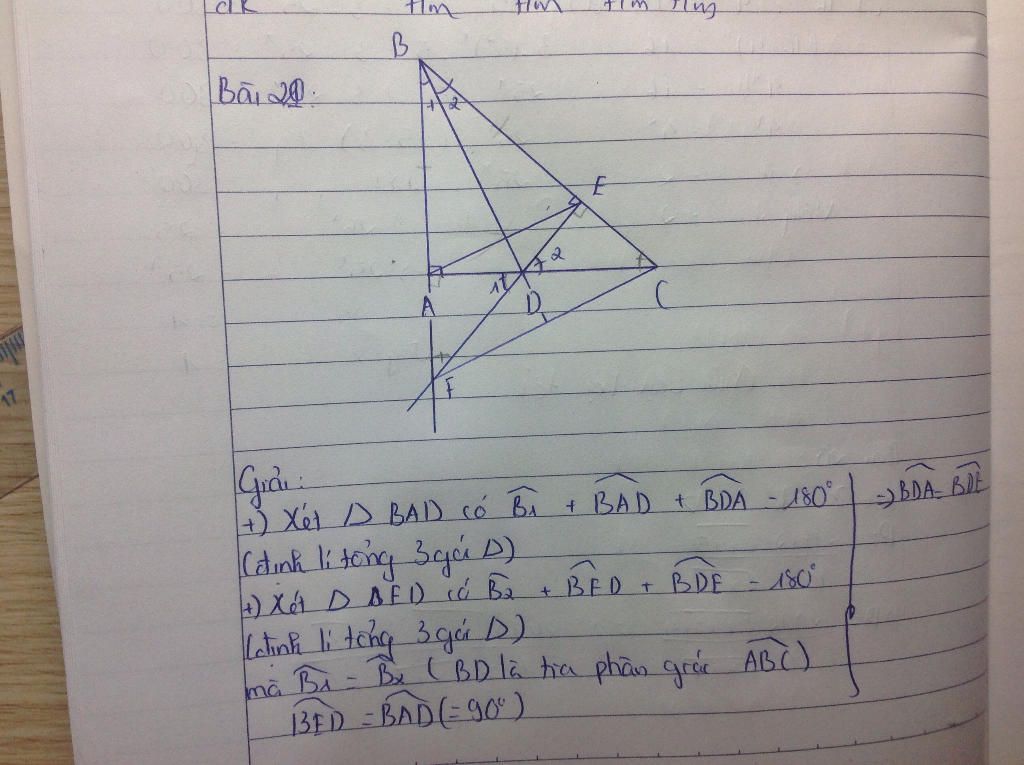 Bài 21:
B
1 2
E
2
1
A D C
F
Giải:
+) Xét Δ BAD có B̂₁ + B̂AD + B̂DA = 180° ⇒ B̂DA = B̂DE
(định lí tổng 3 góc Δ)
+) Xét Δ BED có B̂₂ + B̂ED + B̂DE = 180°
(định lí tổng 3 góc Δ)
mà B̂₁ = B̂₂ (BD là tia phân giác ÂBC)
B̂ED = B̂AD (= 90°)
17